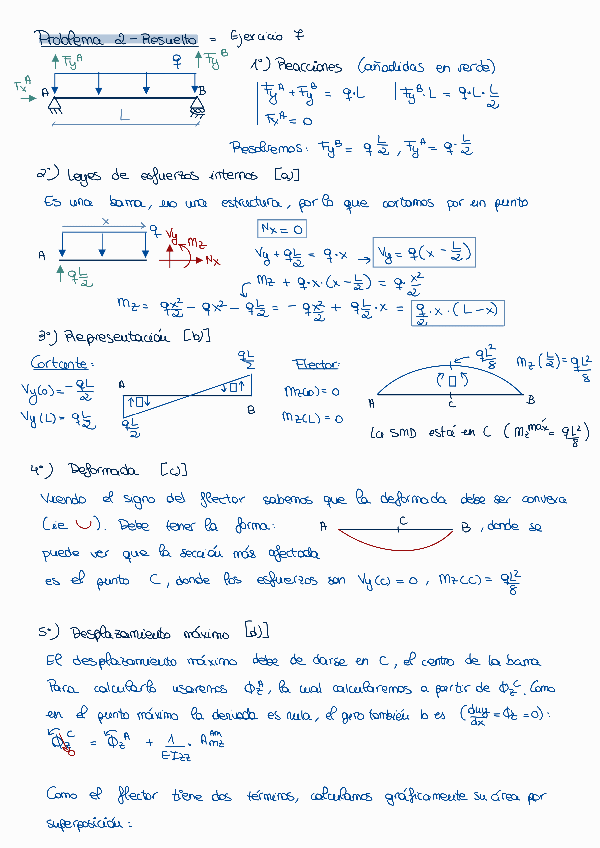 Problema 2 - Resuelto = Ejercicio 7
FyA q FyB
FxA A B
L
1º) Reacciones (añadidas en verde)
FyA + FyB = q·L FyB·L = q·L·L/2
FxA = 0
Resolvemos: FyB = q L/2 , FyA = q·L/2
2º) Leyes de esfuerzos internos [a]
Es una barra, no una estructura, por lo que cortamos por un punto
x q Vy Mz Nx
A qL/2
Nx = 0
Vy + qL/2 = q·x → Vy = q(x - L/2)
Mz + q·x·(x - L/2) = q·x²/2
Mz = qx²/2 - qx² - qL/2 = - qx²/2 + qL/2·x = q/2·x·(L-x)
3º) Representación [b]
Cortante:
Vy(0) = -qL/2
Vy(L) = qL/2
A B qL/2 qL/2
Flector:
Mz(0) = 0
Mz(L) = 0
A C B qL²/8 Mz(L/2) = qL²/8
La SMD está en C (Mz máx = qL²/8)
4º) Deformada [c]
Viendo el signo del flector sabemos que la deformada debe ser convexa
(ie ∪). Debe tener la forma: A C B , donde se
puede ver que la sección más afectada
es el punto C, donde los esfuerzos son Vy(C) = 0 , Mz(C) = qL²/8
5º) Desplazamiento máximo [d]
El desplazamiento máximo debe de darse en C, el centro de la barra
Para calcularlo usaremos ϕzA, la cual calcularemos a partir de ϕzC. Como
en el punto máximo la derivada es nula, el giro también lo es (duy/dx = ϕz = 0):
ϕzC 0 = ϕzA + 1/EIzz · AMzAM
Como el flector tiene dos términos, calculamos gráficamente su área por
superposición: